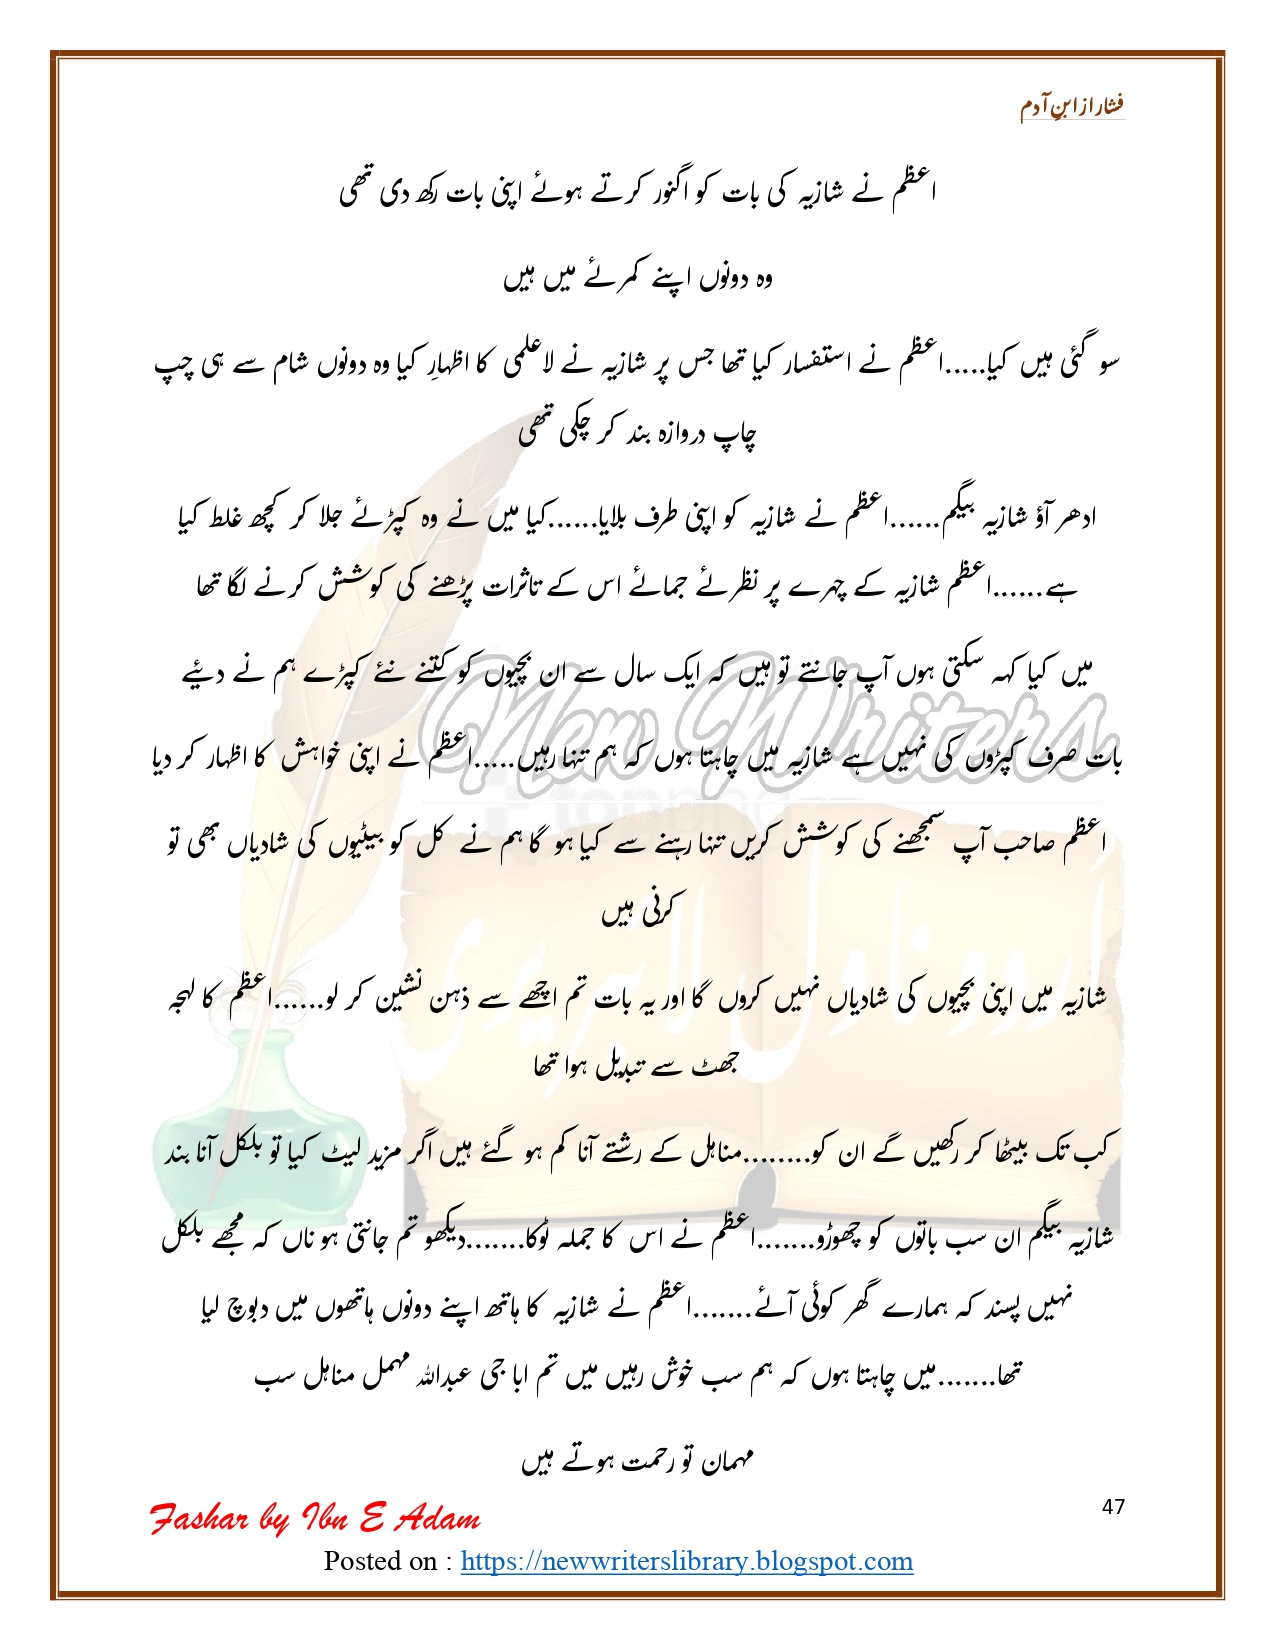 فشار از ابنِ آدم
اعظم نے شازیہ کی بات کو اگنور کرتے ہوئے اپنی بات رکھ دی تھی
وہ دونوں اپنے کمرئے میں ہیں
سو گئی ہیں کیا.....اعظم نے استفسار کیا تھا جس پر شازیہ نے لاعلمی کا اظہارِ کیا وہ دونوں شام سے ہی چپ
چاپ دروازہ بند کر چکی تھی
ادھر آؤ شازیہ بیگم......اعظم نے شازیہ کو اپنی طرف بلایا......کیا میں نے وہ کپڑئے جلا کر کچھ غلط کیا
ہے......اعظم شازیہ کے چہرے پر نظرئے جمائے اس کے تاثرات پڑھنے کی کوشش کرنے لگا تھا
میں کیا کہہ سکتی ہوں آپ جانتے تو ہیں کہ ایک سال سے ان بچیوں کو کتنے نئے کپڑے ہم نے دیئے
بات صرف کپڑوں کی نہیں ہے شازیہ میں چاہتا ہوں کہ ہم تنہا رہیں.....اعظم نے اپنی خواہش کا اظہار کر دیا
اعظم صاحب آپ سمجھنے کی کوشش کریں تنہا رہنے سے کیا ہو گا ہم نے کل کو بیٹیوں کی شادیاں بھی تو
کرنی ہیں
شازیہ میں اپنی بچیوں کی شادیاں نہیں کروں گا اور یہ بات تم اچھے سے ذہن نشین کر لو......اعظم کا لہجہ
جھٹ سے تبدیل ہوا تھا
کب تک بیٹھا کر رکھیں گے ان کو........مناہل کے رشتے آنا کم ہو گئے ہیں اگر مزید لیٹ کیا تو بلکل آنا بند
شازیہ بیگم ان سب باتوں کو چھوڑو.......اعظم نے اس کا جملہ ٹوکا.......دیکھو تم جانتی ہو ناں کہ مجھے بلکل
نہیں پسند کہ ہمارے گھر کوئی آئے.......اعظم نے شازیہ کا ہاتھ اپنے دونوں ہاتھوں میں دبوچ لیا
تھا.......میں چاہتا ہوں کہ ہم سب خوش رہیں میں تم ابا جی عبداللہ مہمل مناہل سب
مہمان تو رحمت ہوتے ہیں
47
Fashar by Ibn E Adam
Posted on : https://newwriterslibrary.blogspot.com
New Writers
اردو ناول لائبریری